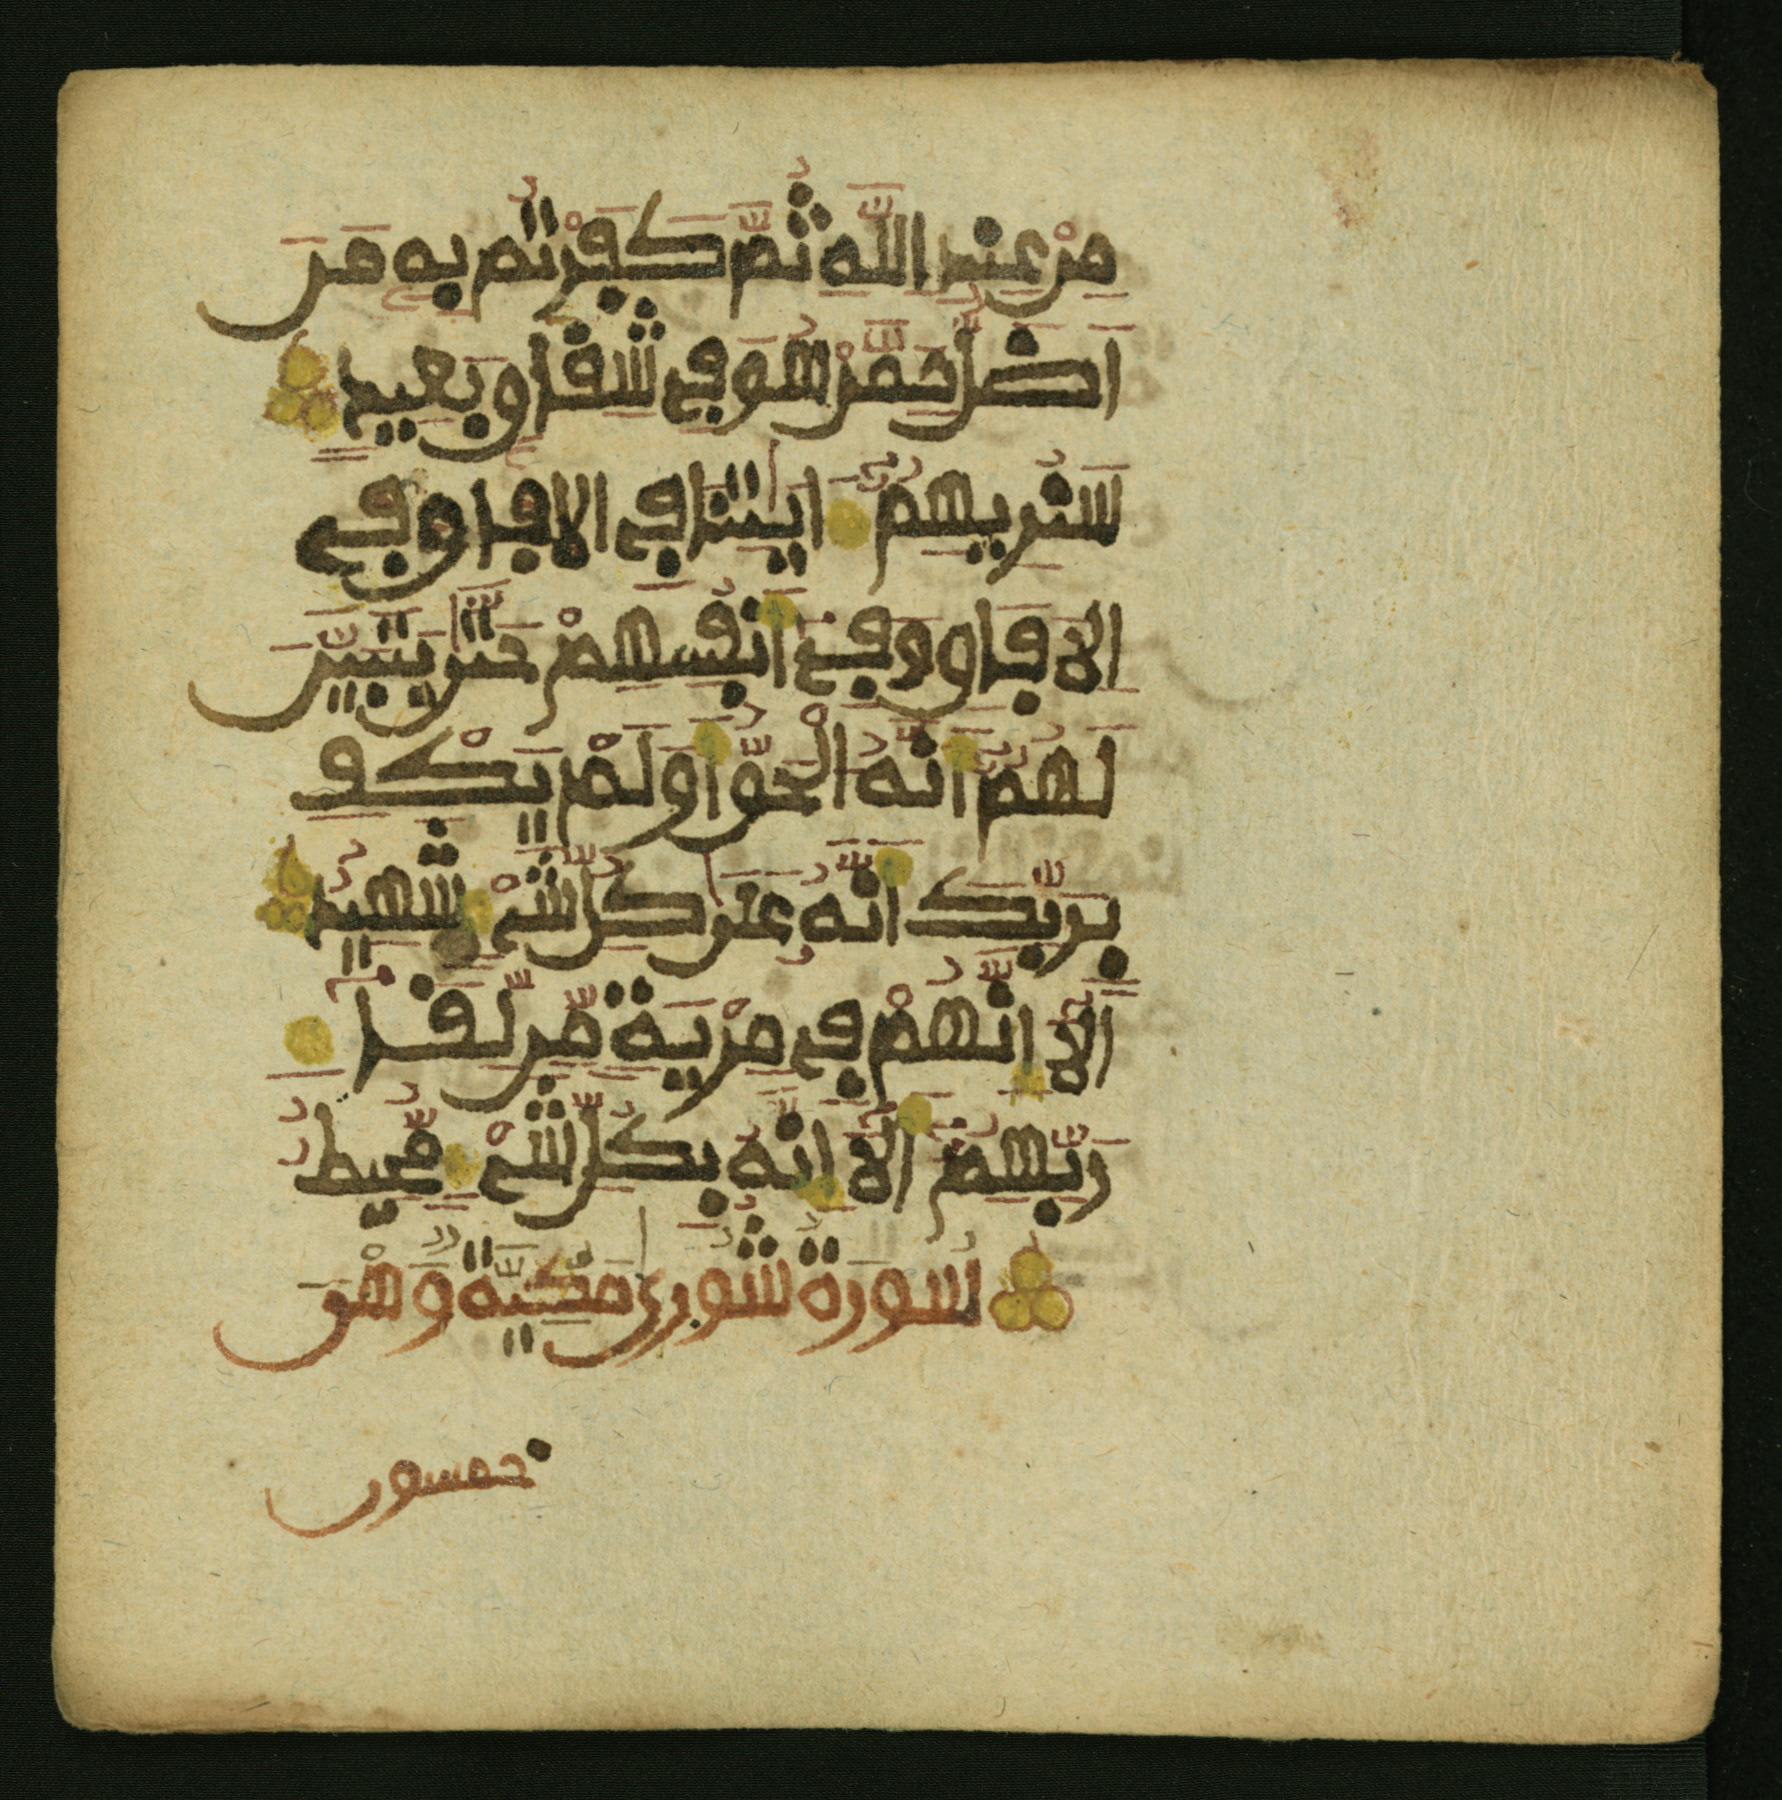 مِنْ عِندِ اللَّهِ ثُمَّ كَفَرْتُم بِهِ مَنَ
اضَلُّ مِمَّنْ هُوَ فِي شِقَاقٍ بَعِيدٍ
سَنُرِيهِمُ ءَايَٰتِنَا فِي الافاق وفي
الافَاقِ وَفِي أَنفُسِهِمْ حَتَّىٰ يَتَبَيَّنَ
لَهُمُ أَنَّهُ الْحَقُّ أَوَلَمْ يَكْفِ
بِرَبِّكَ أَنَّهُ عَلَىٰ كُلِّ شَيْءٍ شَهِيدٌ
أَلَا إِنَّهُمْ فِي مِرْيَةٍ مِّن لِّقَاءِ
رَبِّهِمُ أَلَا إِنَّهُ بِكُلِّ شَيْءٍ مُّحِيطٌ
سُورَةُ شُورَىٰ مَكِّيَّةٌ وَهْيَ
خمسون